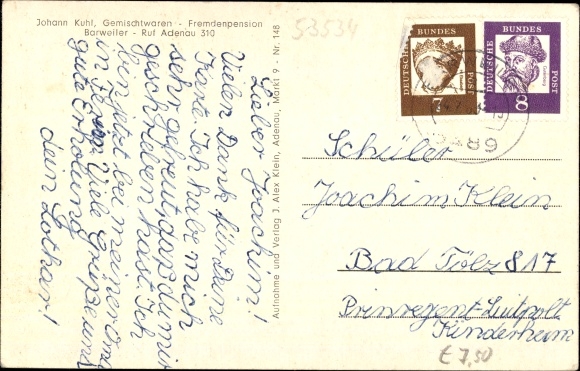 Johann Kuhl, Gemischtwaren - Fremdenpension
Barweiler - Ruf Adenau 310
53534
Lieber Joachim!
Vielen Dank für Deine
Karte. Ich habe mich
sehr gefreut, daß du mir
geschrieben hast. Ich
bin jetzt bei meiner Oma
in Viele Grüße und
gute Erholung
dein Lothar!
Aufnahme und Verlag J. Alex Klein, Adenau, Markt 9 - Nr. 148
DEUTSCHE BUNDES POST
7
DEUTSCHE BUNDES POST
8
5489
Schüler
Joachim Klein
Bad Tölz 817
Prinregent-Luitpolt
Kinderheim
€ 7,50